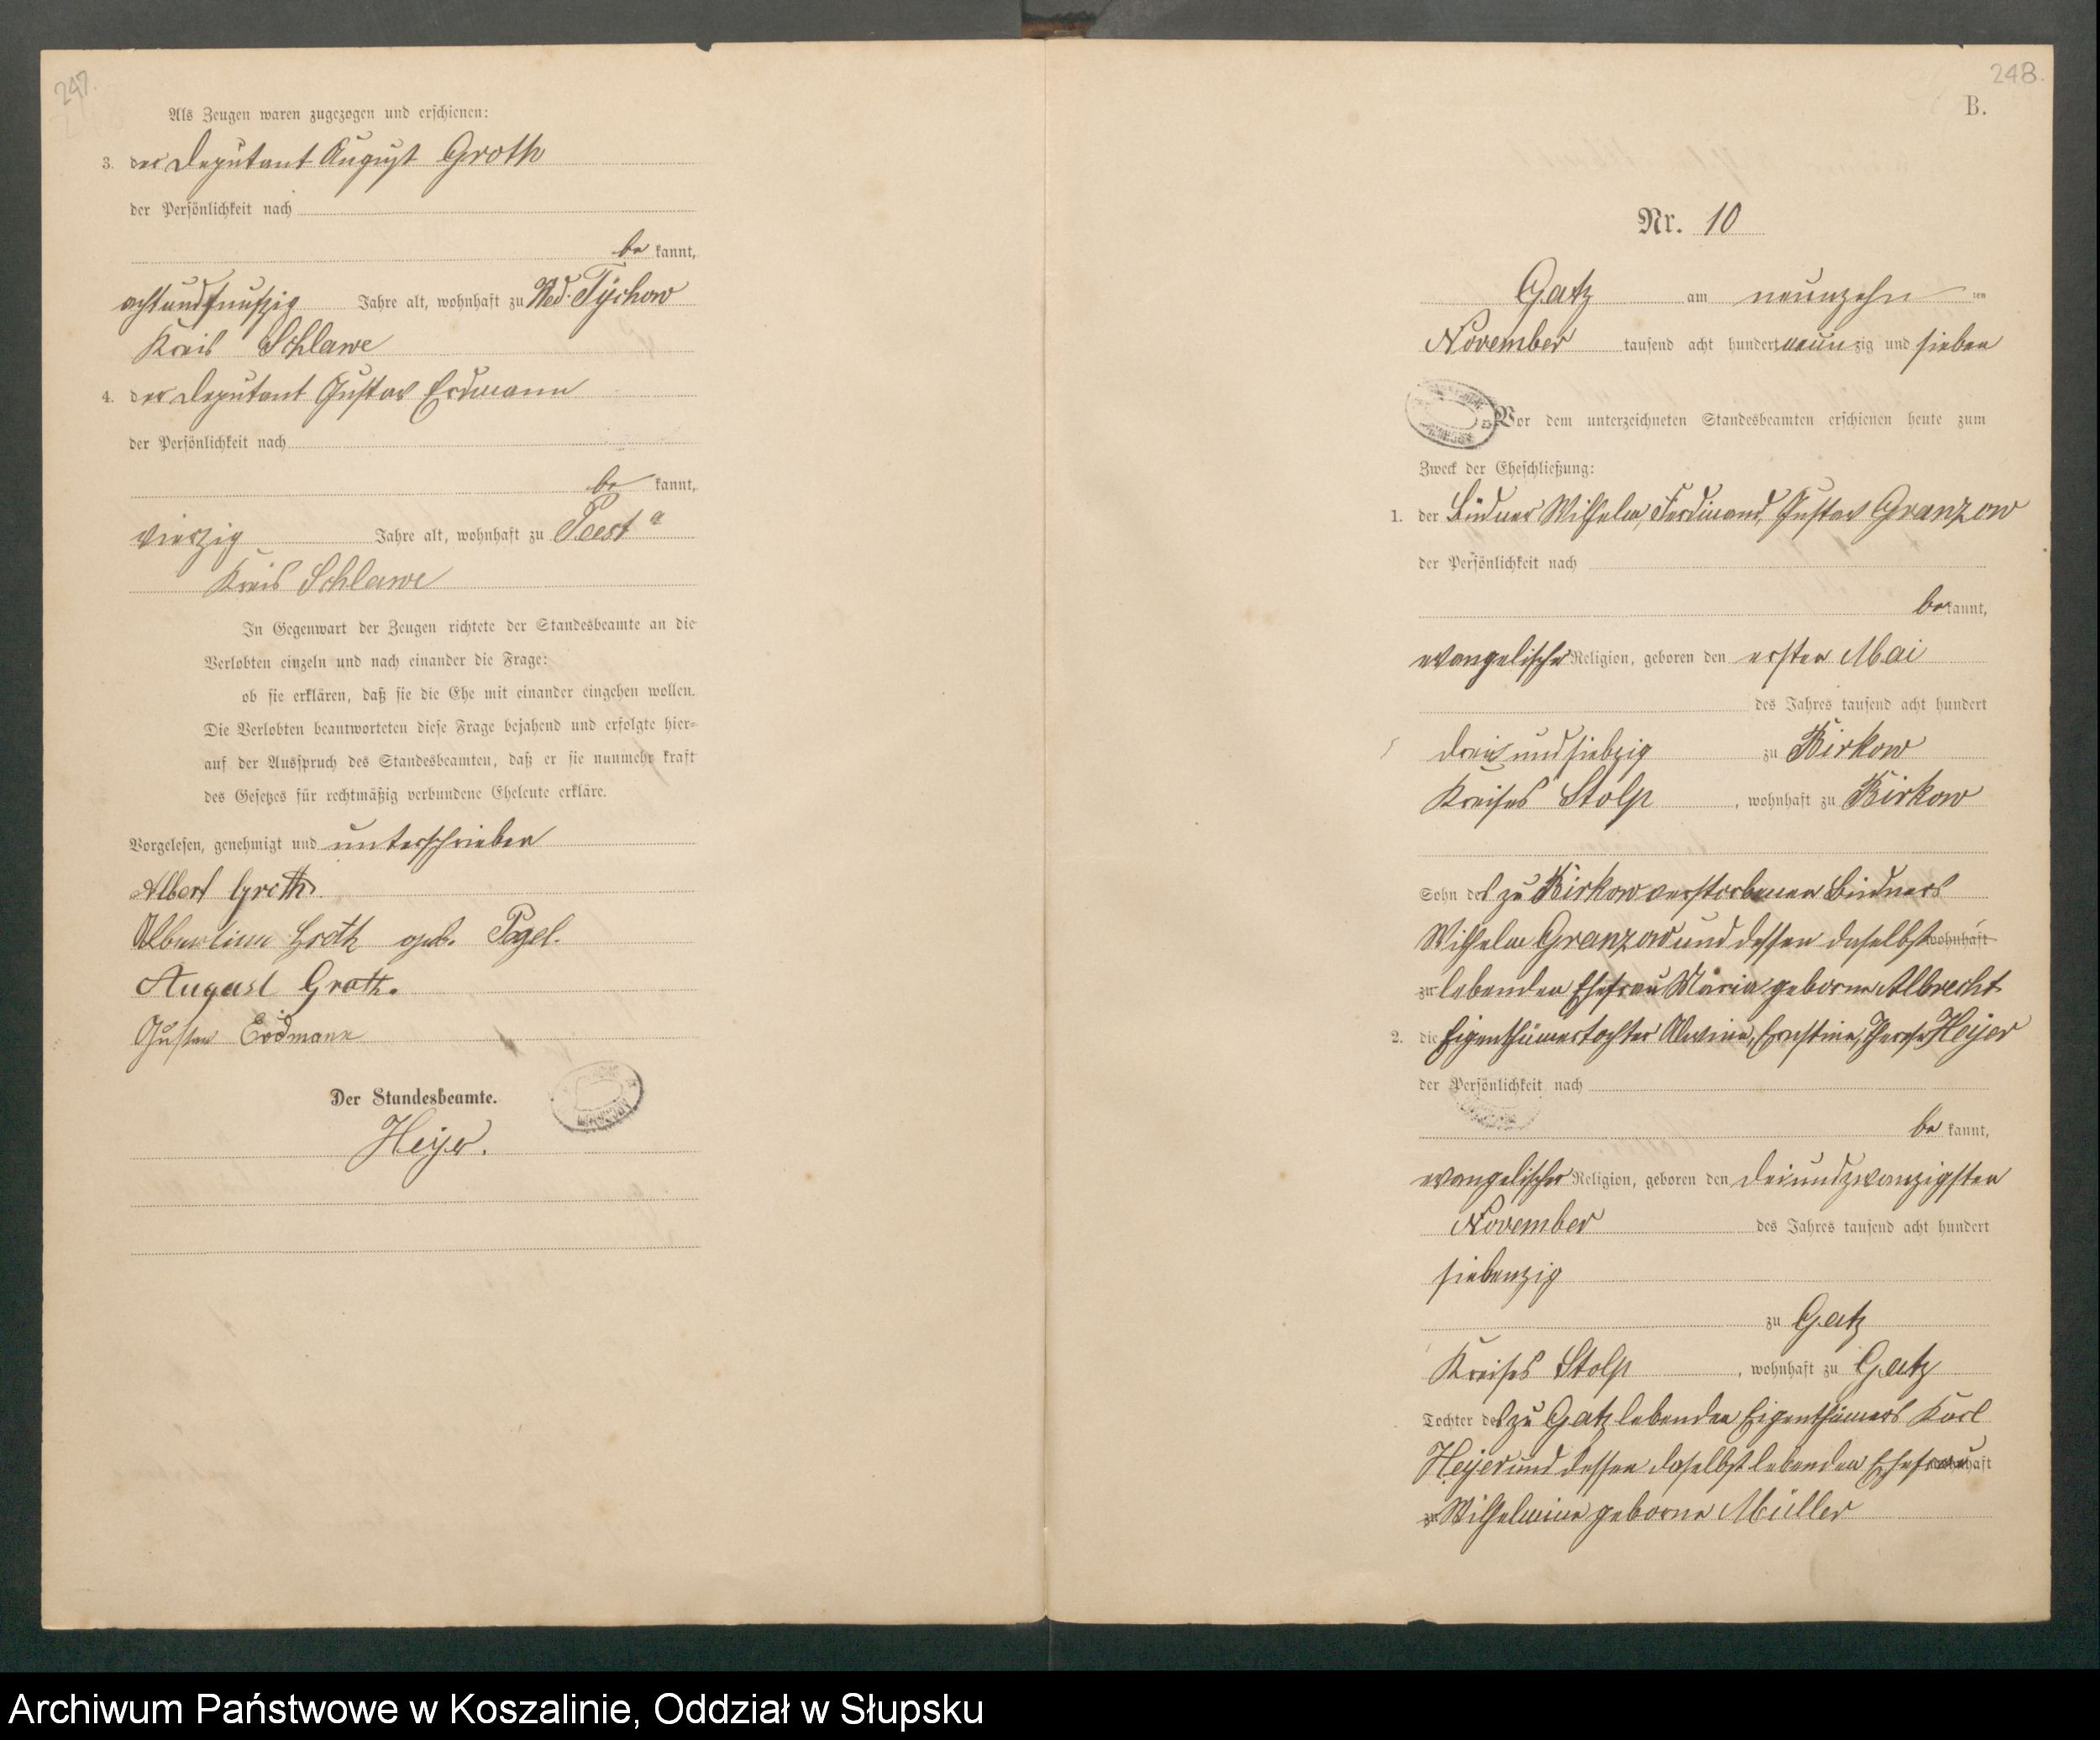 247.
Als Zeugen waren zugezogen und erschienen:
3. der Deputant August Groth
der Persönlichkeit nach
be kannt,
achtundfunfzig Jahre alt, wohnhaft zu Wend. Tychow
Kreis Schlawe
4. der Deputant Gustav Erdmann
der Persönlichkeit nach
be kannt,
vierzig Jahre alt, wohnhaft zu Peest
Kreis Schlawe
In Gegenwart der Zeugen richtete der Standesbeamte an die
Verlobten einzeln und nach einander die Frage:
ob sie erklären, daß sie die Ehe mit einander eingehen wollen.
Die Verlobten beantworteten diese Frage bejahend und erfolgte hier=
auf der Ausspruch des Standesbeamten, daß er sie nunmehr kraft
des Gesetzes für rechtmäßig verbundene Eheleute erkläre.
Vorgelesen, genehmigt und unterschrieben
Albert Groth
Albertine Groth geb. Pagel.
August Groth.
Gustav Erdmann
Der Standesbeamte.
Heyer.
248.
B.
Nr. 10
Gatz am neunzehn ten
November tausend acht hundert neun zig und sieben
Vor dem unterzeichneten Standesbeamten erschienen heute zum
Zweck der Eheschließung:
1. der Büdner Wilhelm, Ferdinand, Gustav Granzow
der Persönlichkeit nach
be kannt,
evangelischer Religion, geboren den ersten Mai
des Jahres tausend acht hundert
dreiundsiebzig zu Birkow
Kreises Stolp, wohnhaft zu Birkow
Sohn des zu Birkow verstorbenen Büdners
Wilhelm Granzow und dessen daselbst wohnhaft
zu lebenden Ehefrau Maria geborne Albrecht
2. die Eigenthümertochter Alwine, Ernstine, Therese Heyer
der Persönlichkeit nach
be kannt,
evangelischer Religion, geboren den deiundzwanzigsten
November des Jahres tausend acht hundert
siebenzig
zu Gatz
Kreises Stolp, wohnhaft zu Gatz
Tochter des zu Gatz lebenden Eigenthümers Karl
Heyer und dessen daselbst lebenden Ehefrau wohnhaft
zu Wilhelmine geborne Müller
Archiwum Państwowe w Koszalinie, Oddział w Słupsku